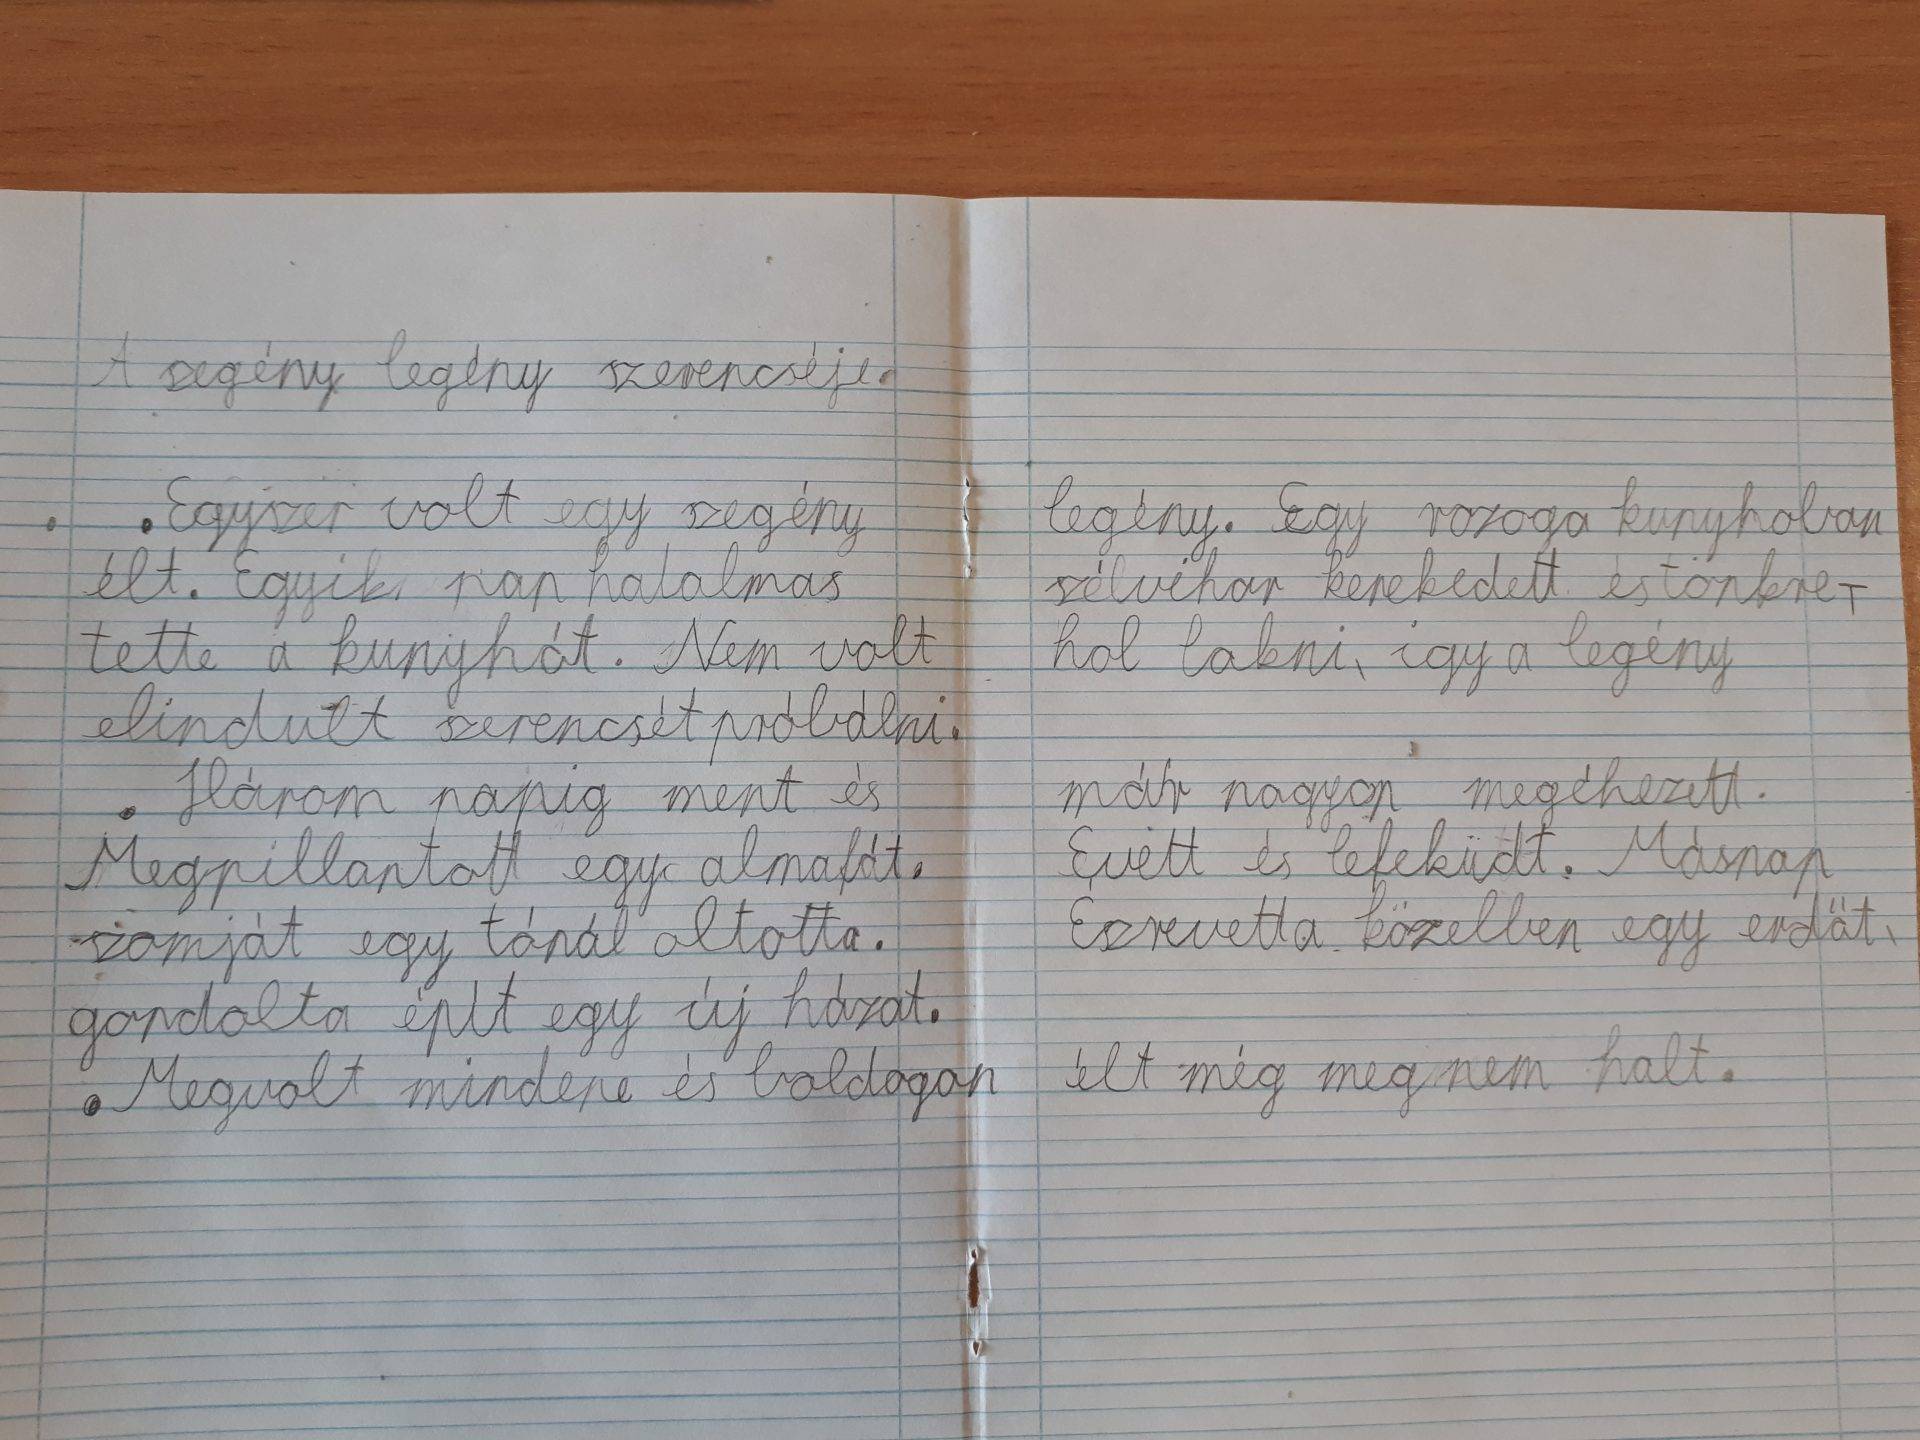 A szegény legény szerencséje.
Egyszer volt egy szegény legény. Egy rozoga kunyhoban
élt. Egyik nap hatalmas szélvihar kerekedett és tönkre-
tette a kunyhót. Nem volt hol lakni, igy a legény
elindult szerencsét próbálni.
Három napig ment és már nagyon megéhezett.
Megpillantott egy almafát. Evett és lefeküdt. Másnap
szomját egy tónál oltotta. Eszrevett a közelben egy erdőt,
gondolta épít egy új házat.
Megvolt mindene és boldogan élt még meg nem halt.